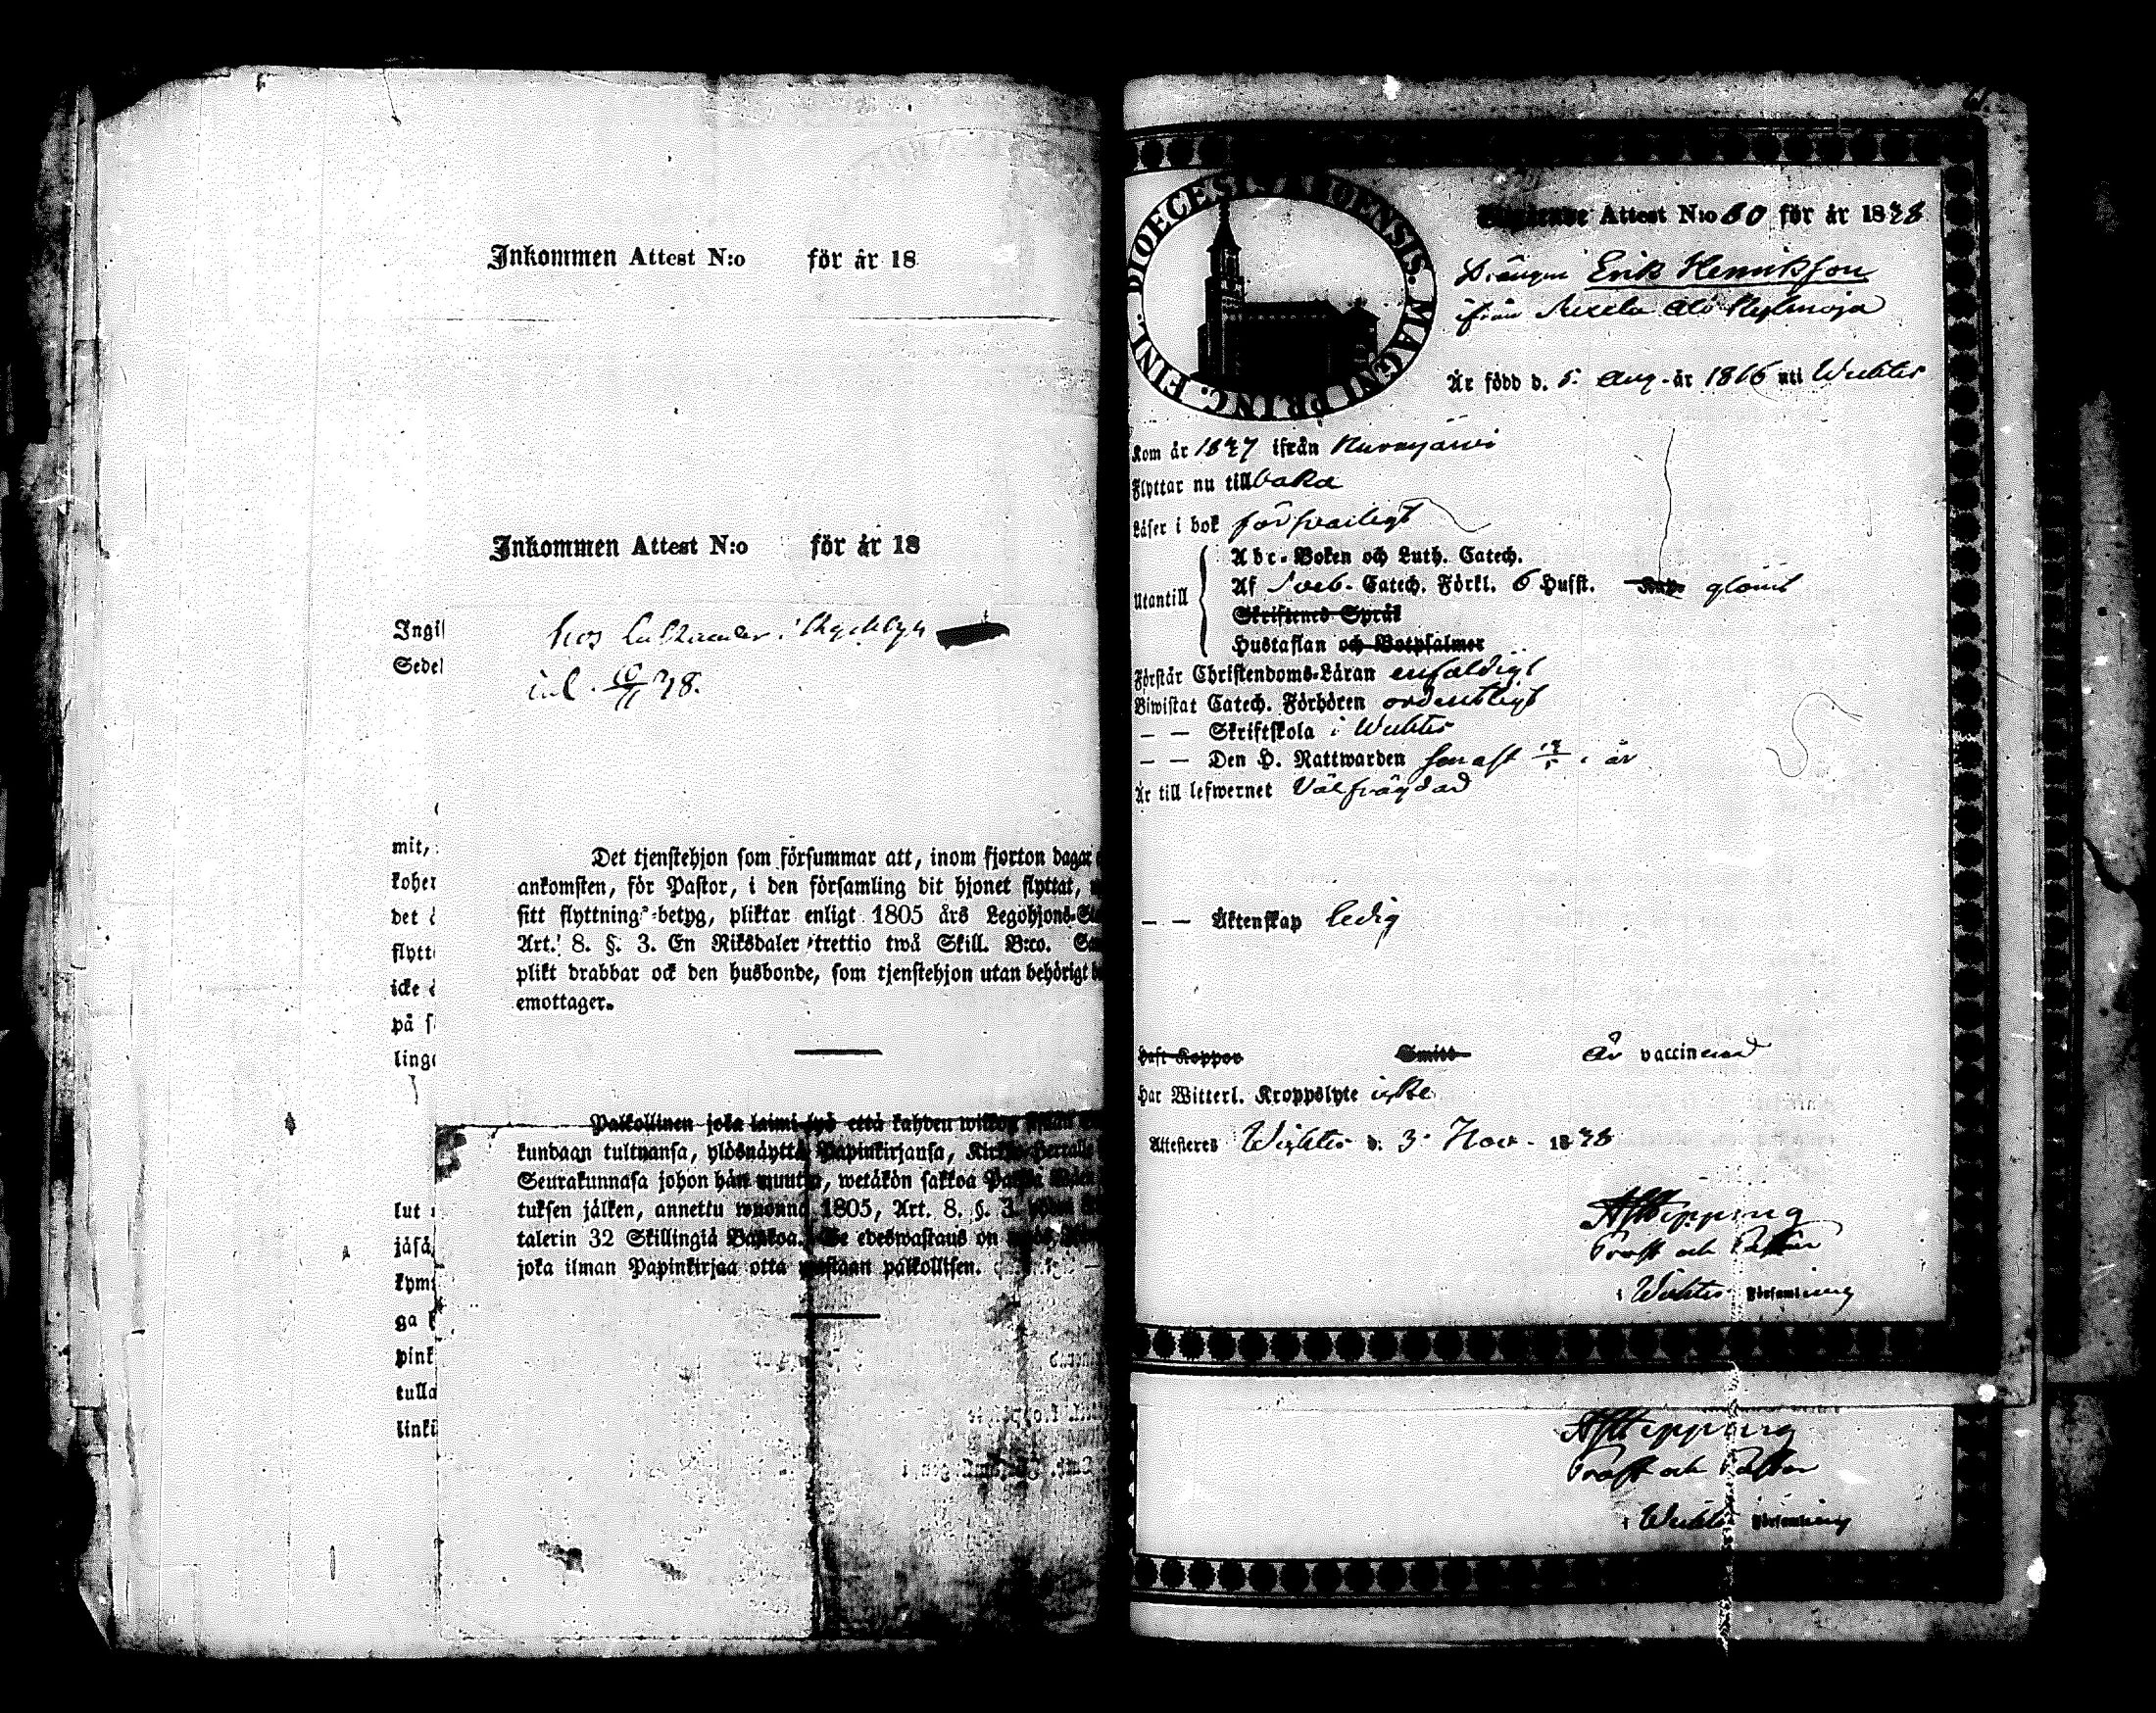 Inkommen Attest N:o för år 18
Inkommen Attest N:o för år 18
Ingif
Sedel
hos i
inl. 10/11 48.
mit,
koher
det
flytt
icke
på f
linge
Det tjenstehjon som försummar att, inom fjorton dagar
ankomsten, för Pastor, i den församling dit hjonet flyttat,
sitt flyttnings-betyg, pliktar enligt 1805 års Legohjons-
Art. 8. §. 3. En Riksdaler trettio två Skill. B:co.
plikt drabbar ock den husbonde, som tjenstehjon utan behörigt
emottager.
Palkollinen joka laimi-lyö että kahden wiikon
kundaan tultuansa, ylösnäyttä Papinkirjansa,
Seurakunnasa johon hän muutta, wetäkön sakkoa
tuksen jälken, annettu wuonna 1805, Art. 8. §. 3.
talerin 32 Skillingiä Bankoa. edeswastaus on
joka ilman Papinkirjaa otta wastaan palkollisen.
lut
jäsä
kyms
ga
pink
tulla
linki
DIOECESIS ABOENSIS. MAGNI PRINC. FINL.
Attest N:o 60 för år 1848
Drängen Erik Henrikson
ifrån
Är född d. 5. Aug. år 1816 uti Wichtis
Kom år 1847 ifrån Nurmijärwi
Flyttar nu tillbaka
Läser i bok försvarligt
Utantill
Abc-Boken och Luth. Catech.
Af Sveb. Catech. Förkl. 6 Hufst. glömt
Skriftenes Språk
Hustaflan och Botpsalmer
Förstår Christendoms-Läran enfaldigt
Biwistat Catech. Förhören ordentligt
— — Skriftskola i Wichtis
— — Den H. Nattwarden i år
Är till lefwernet Välfrägdad
— — Äktenskap ledig
Haft Koppor Smitt är vaccinerad
Har Witterl. Kroppslyte icke
Attesteres Wichtis d. 3. Nov. 1848
AF Hipping
Prost och Pastor
i Wichtis Församling
AF Hipping
Prost och Pastor
i Wichtis Församling